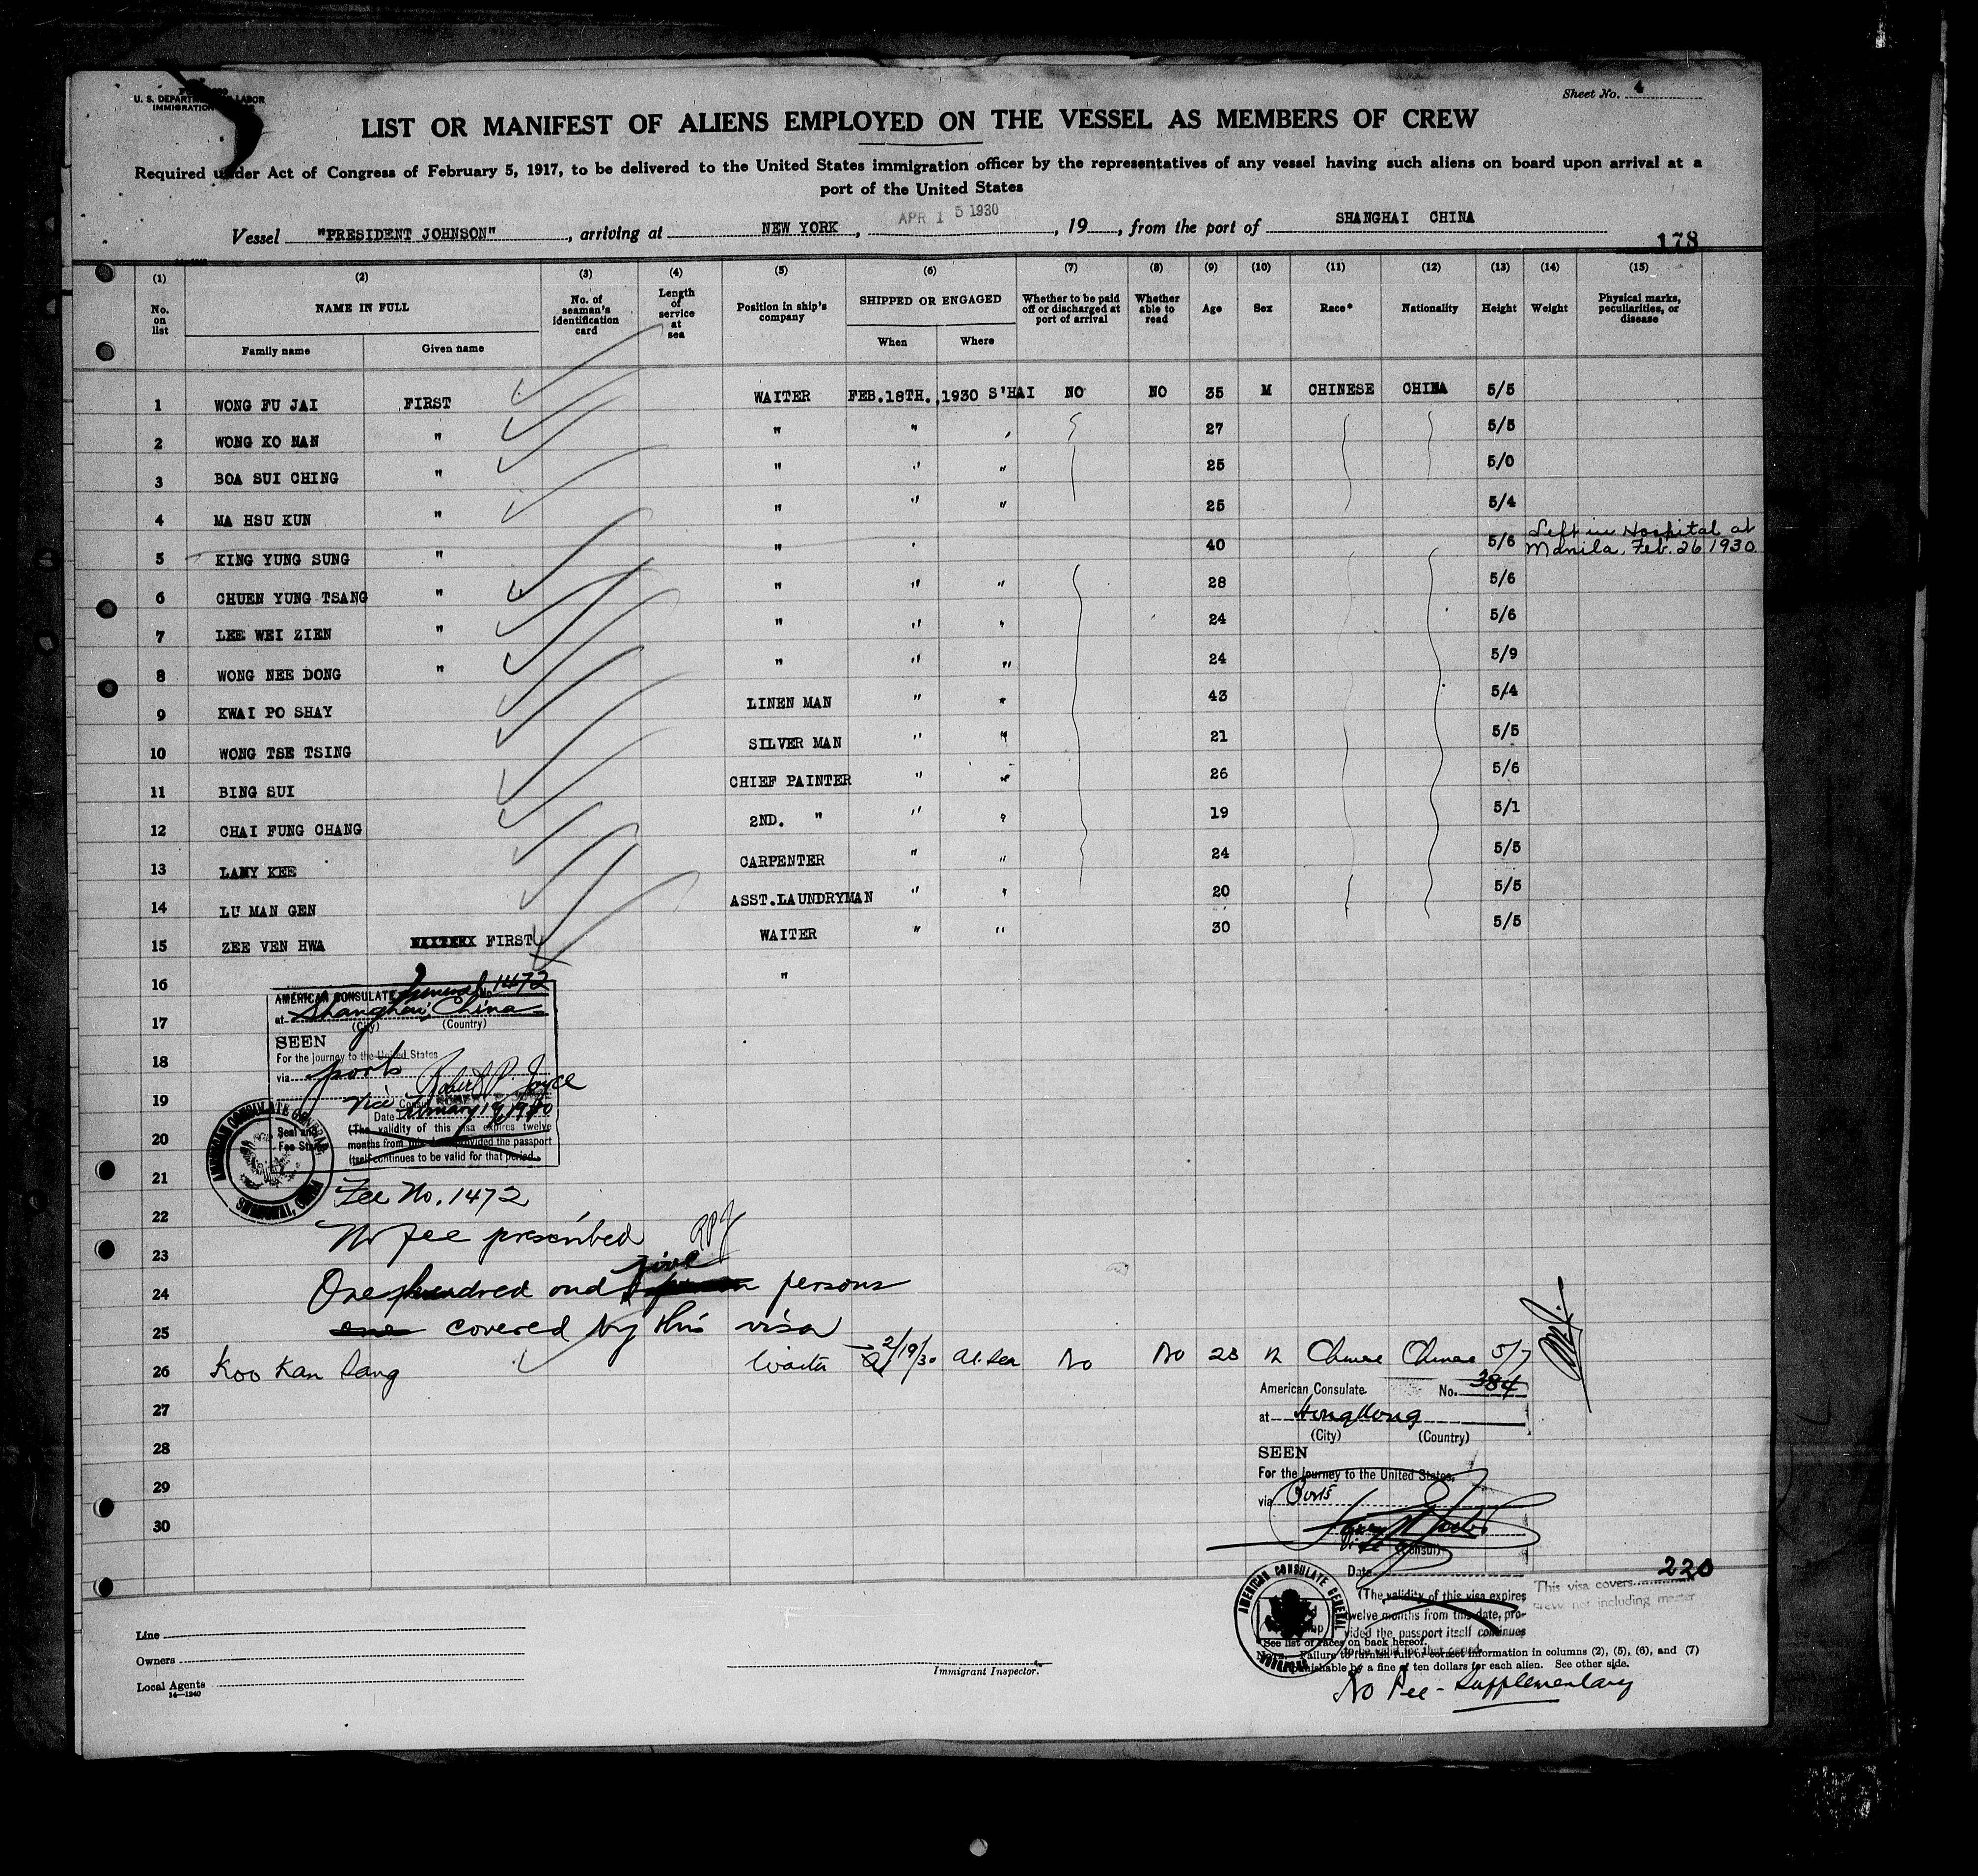 Sheet No. 4
U. S. DEPARTMENT OF LABOR
IMMIGRATION
LIST OR MANIFEST OF ALIENS EMPLOYED ON THE VESSEL AS MEMBERS OF CREW
Required under Act of Congress of February 5, 1917, to be delivered to the United States immigration officer by the representatives of any vessel having such aliens on board upon arrival at a
port of the United States
Vessel "PRESIDENT JOHNSON", arriving at NEW YORK, APR 15 1930, 19, from the port of SHANGHAI CHINA
178
(1) (2) (3) (4) (5) (6) (7) (8) (9) (10) (11) (12) (13) (14) (15)
No. on list NAME IN FULL No. of seaman's identification card Length of service at sea Position in ship's company SHIPPED OR ENGAGED Whether to be paid off or discharged at port of arrival Whether able to read Age Sex Race* Nationality Height Weight Physical marks, peculiarities, or disease
Family name Given name When Where
1 WONG FU JAI FIRST WAITER FEB.18TH.,1930 S'HAI NO NO 35 M CHINESE CHINA 5/5
2 WONG KO NAN " " " " 27 5/5
3 BOA SUI CHING " " " " 25 5/0
4 MA HSU KUN " " " " 25 5/4
5 KING YUNG SUNG " " " 40 5/6 Left in Hospital at Manila, Feb. 26 1930
6 CHUEN YUNG TSANG " " " " 28 5/6
7 LEE WEI ZIEN " " " " 24 5/6
8 WONG NEE DONG " " " " 24 5/9
9 KWAI PO SHAY LINEN MAN " " 43 5/4
10 WONG TSE TSING SILVER MAN " " 21 5/5
11 BING SUI CHIEF PAINTER " " 26 5/6
12 CHAI FUNG CHANG 2ND. " " " 19 5/1
13 LAMY KEE CARPENTER " " 24 5/5
14 LU MAN GEN ASST.LAUNDRYMAN " " 20 5/5
15 ZEE VEN HWA FIRST WAITER " " 30 5/5
16 "
17
18
19
20
21
22
23
24
25
AMERICAN CONSULATE General No. 1472
at Shanghai, China
(City) (Country)
SEEN
For the journey to the United States
via ports
Robert P. Joyce
Vice Consul
Date February 19, 1930
(The validity of this visa expires twelve
months from this date provided the passport
itself continues to be valid for that period.
AMERICAN CONSULATE GENERAL
SHANGHAI, CHINA
Seal and
Fee Stamp
Fee No. 1472
No fee prescribed RPJ
One hundred and five persons
covered by this visa
26 Koo Kan Sang Waiter 2/19/30 At Sea No No 28 M Chinese Chinese 5/7
27
28
29
30
American Consulate No. 384
at HongKong
(City) (Country)
SEEN
For the journey to the United States,
via Ports
Vice Consul
Date
(The validity of this visa expires
twelve months from this date, pro-
vided the passport itself continues
to be valid for that period.
AMERICAN CONSULATE GENERAL
HONGKONG
220
This visa covers
crew not including master
Line
Owners
Local Agents
14—1240
Immigrant Inspector.
*See list of races on back hereof.
NOTE.—Failure to furnish full or correct information in columns (2), (5), (6), and (7)
is punishable by a fine of ten dollars for each alien. See other side.
No Fee - Supplementary